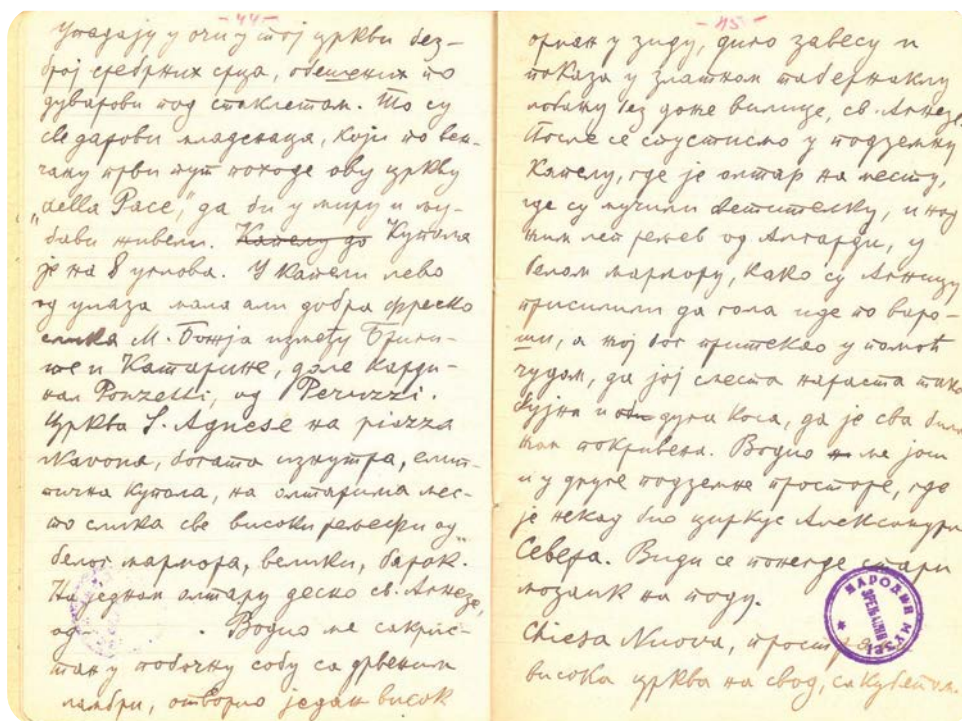 - 44 -
Упадају у очи у тој цркви без-
број сребрних срца, обешених по
дуварови под стаклетом. То су
све дарови младенаца, који по вен-
чању први пут походе ову цркву
„della Pace," да би у миру и љу-
бави живели. Капелу до Купола
је на 8 углова. У капели лево
од улаза мала али добра фреско
слика М. Божја између Бриги-
те и Катарине, доле карди-
нал Ponzetti, од Peruzzi.
Црква S. Agnese на piazza
Navona, богата изнутра, елип-
тична купола, на олтарима мес-
то слика све високи рељефи од
белог мармора, велики, барок.
На једном олтару десно св. Агнезе,
од . Водио ме сакрис-
тан у побочну собу са дрвеним
ламбри, отворио један висок
- 45 -
орман у зиду, диго завесу и
показа у златном табернаклу
лобању без доње вилице, св. Агнезе.
После се спустисмо у подземну
капелу, где је олтар на месту,
где су мучили светитељку, и над
њим леп рељеф од Алгарди, у
белом мармору, како су Агнезу
присилили да гола иде по варо-
ши, а њој бог притекао у помоћ
чудом, да јој сместа нараста тако
бујна и дуга коса, да је сва била
покривена. Водио ме још
и у друге подземне просторе, где
је некад био циркус Александра
Севера. Види се понегде стари
мозаик на поду.
Chiesa Nuova, простр
висока црква на свод, са кубетом.
НАРОДНИ МУЗЕЈ
ЗРЕЊАНИН